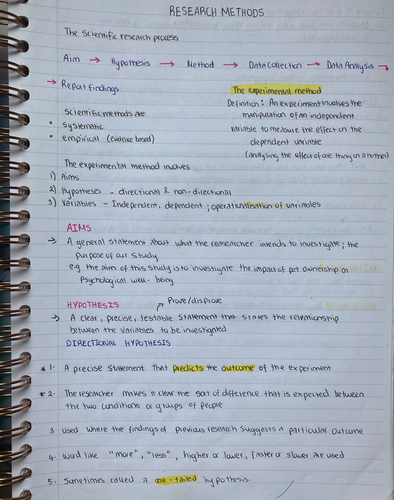 RESEARCH METHODS
The scientific research process
Aim → Hypothesis → Method → Data Collection → Data Analysis →
→ Report findings
The experimental method
Definition: An experiment involves the
manipulation of an independent
variable to measure the effect on the
dependent variable
(analysing the effect of one thing on another)
Scientific methods are
• systematic
• empirical (evidence based)
The experimental method involves
1) Aims
2) Hypotheses - directional & non-directional
3) Variables - Independent, dependent; operationalisation of variables
AIMS
→ A general statement about what the researcher intends to investigate; the
purpose of our study
e.g the aim of this study is to investigate the impact of pet ownership on
Psychological well-being
Prove/disprove
HYPOTHESIS
→ A clear, precise, testable statement that states the relationship
between the variables to be investigated
DIRECTIONAL HYPOTHESIS
* 1. A precise statement that predicts the outcome of the experiment
* 2. The researcher makes it clear the sort of difference that is expected between
the two conditions or groups of people
3. Used where the findings of previous research suggests a particular outcome
4. Word like "more", "less", higher or lower, faster or slower are used
5. Sometimes called a one-tailed hypothesis.